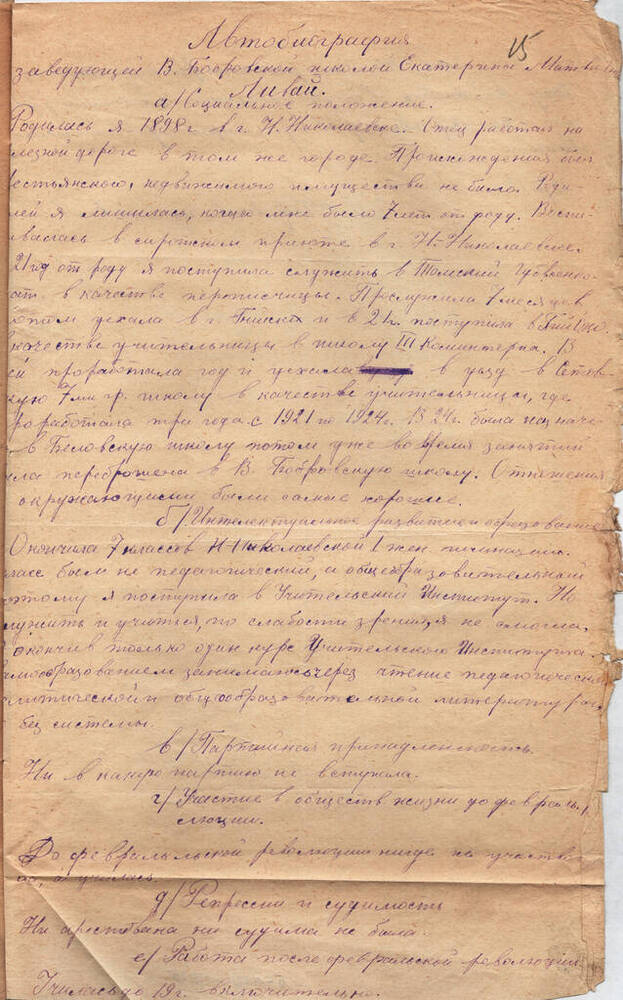 15
Автобиография
заведующей В. Бобровской школой Екатерины Матвеевн
Ливай.
а/ Социальное положение.
Родилась я 1898 г в г. Н. Николаевске. Отец работал на
лезной дороге в том же городе. Происхождения был
естьянского, недвижимого имущества не было. Роди-
лей я лишилась, когда мне было 7 лет от роду. Воспи-
валась в сиротском приюте в г. Н-Николаевске.
21 год от роду я поступила служить в Томский
ат. в качестве переписчицы. Прослужила 7 месяцев
отом уехала в г. Бийск и в 21 г. поступила в
качестве учительницы в школу III Коминтерна. В
ей проработала год и уехала в уезд в
кую 7ми гр. школу в качестве учительницы, где
роработала три года с 1921 по 1924 г. В 24 г. была назначе-
в Беловскую школу потом уже во время занятий
ла переброшена в В. Бобровскую школу. Отношения
окружающими были самые хорошие.
б/ Интелектуальное развитие и образование
Окончила 7 классов Н Николаевской 1 жен. гимназии.
ласс был не педагогический, а общеобразовательный
этому я поступила в Учительский Институт. Но
лужить и учится, по слабости зрения, я не смогла,
окончив только один курс Учительского Института.
амообразованием занималась через чтение педагогическ
литической и общеобразовательной литературы,
без системы.
в/ Партийная принадлежность.
Ни в какую партию не вступала.
г/ Участие в обществ жизни до февраль.
люции.
До февральской революции нигде не участво-
ас, а училась.
д/ Репрессии и судимость
Ни арестована ни судима не была.
е/ Работа после февральской революции
Училась до 19 г. включительно.